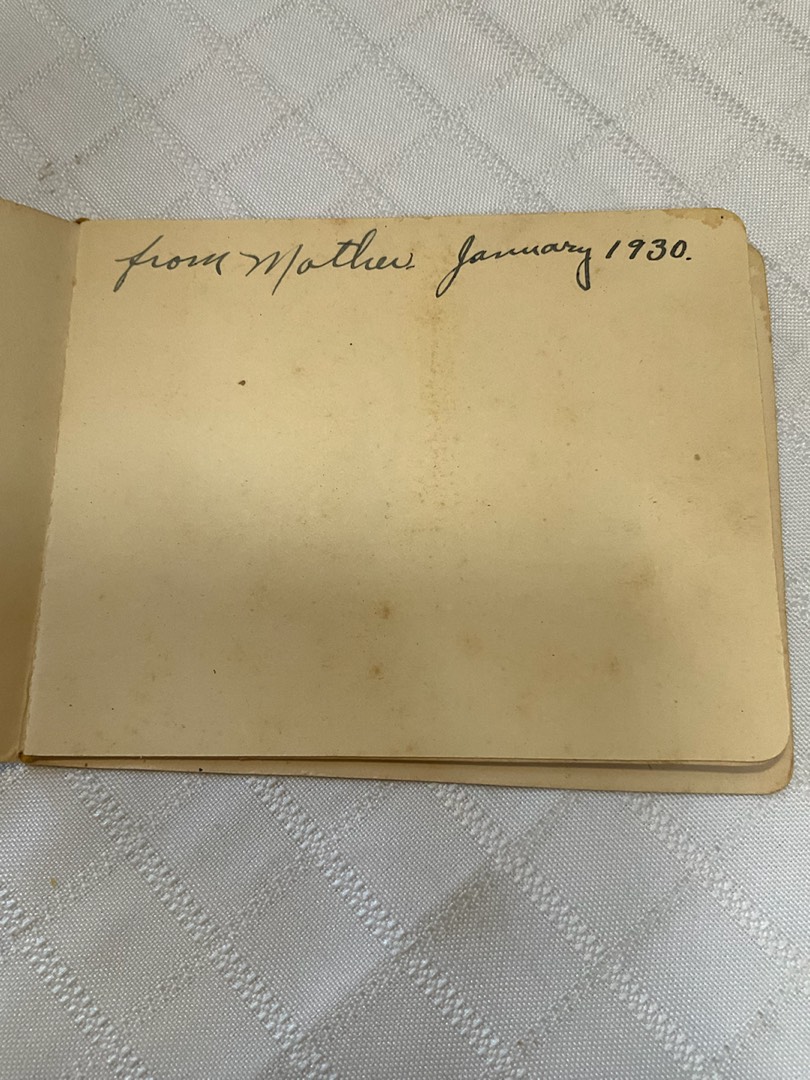 from Mother. January 1930.